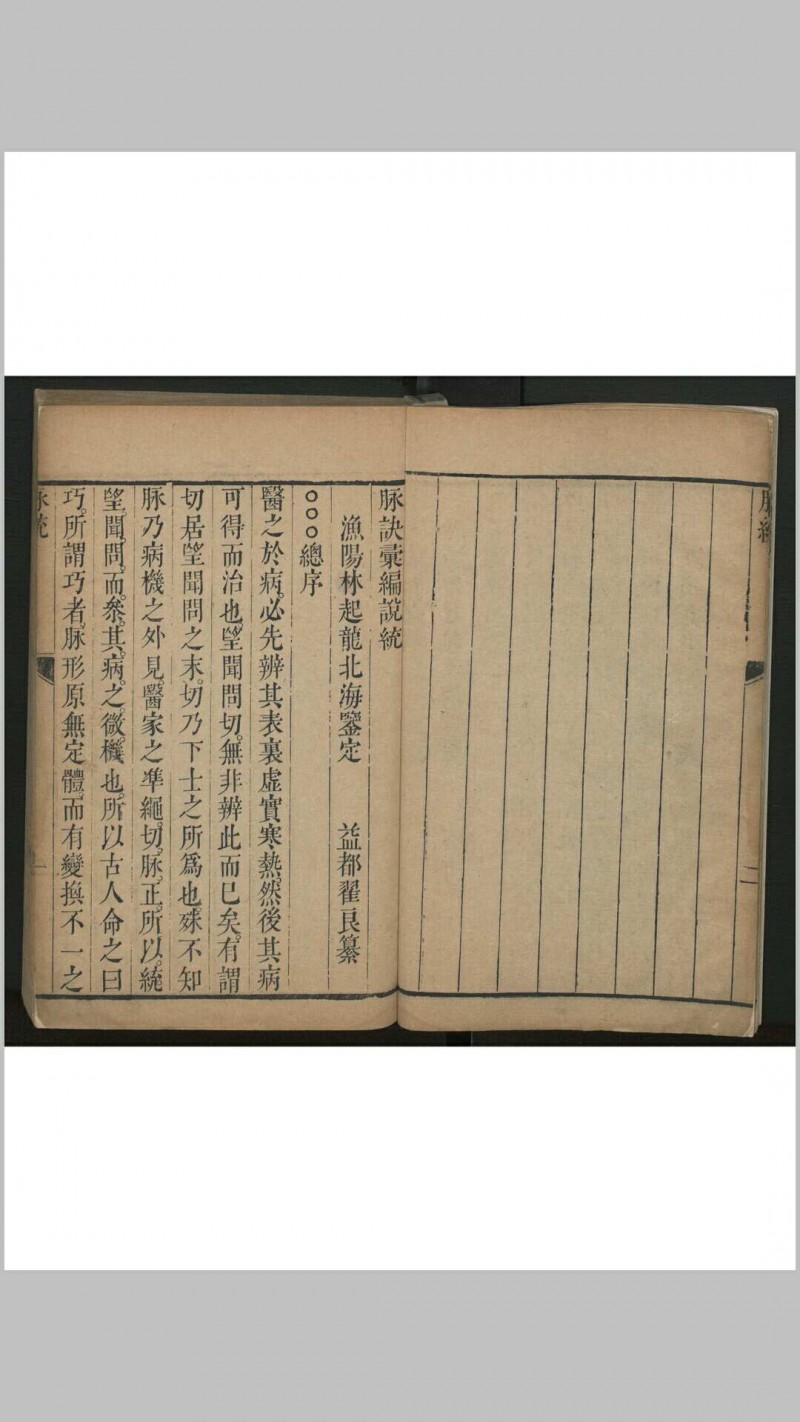 二
脉訣彙編說統
漁陽林起龍北海鑒定　益都翟良纂
○○○總序
醫之於病必先辨其表裏虛實寒熱然後其病
可得而治也望聞問切無非辨此而已矣有謂
切居望聞問之末切乃下士之所爲也殊不知
脉乃病機之外見醫家之準繩切脉正所以統
望聞問而叅其病之微機也所以古人命之曰
巧所謂巧者脉形原無定體而有變換不一之
脉統
一